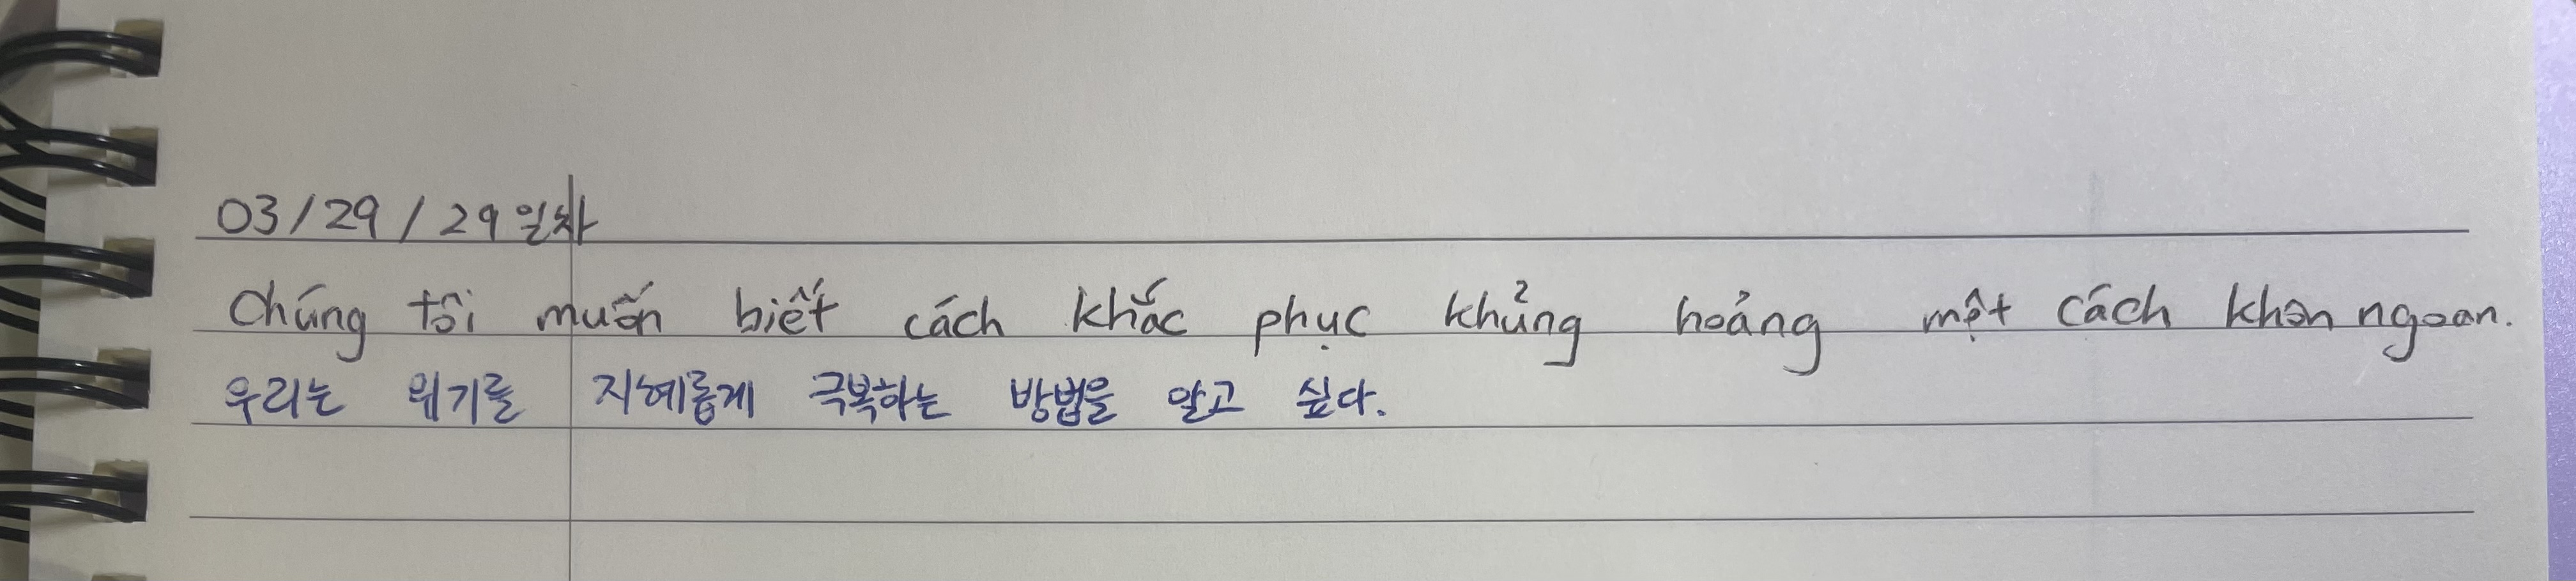 03/29/29일차
Chúng tôi muốn biết cách khắc phục khủng hoảng một cách khôn ngoan.
우리는 위기를 지혜롭게 극복하는 방법을 알고 싶다.